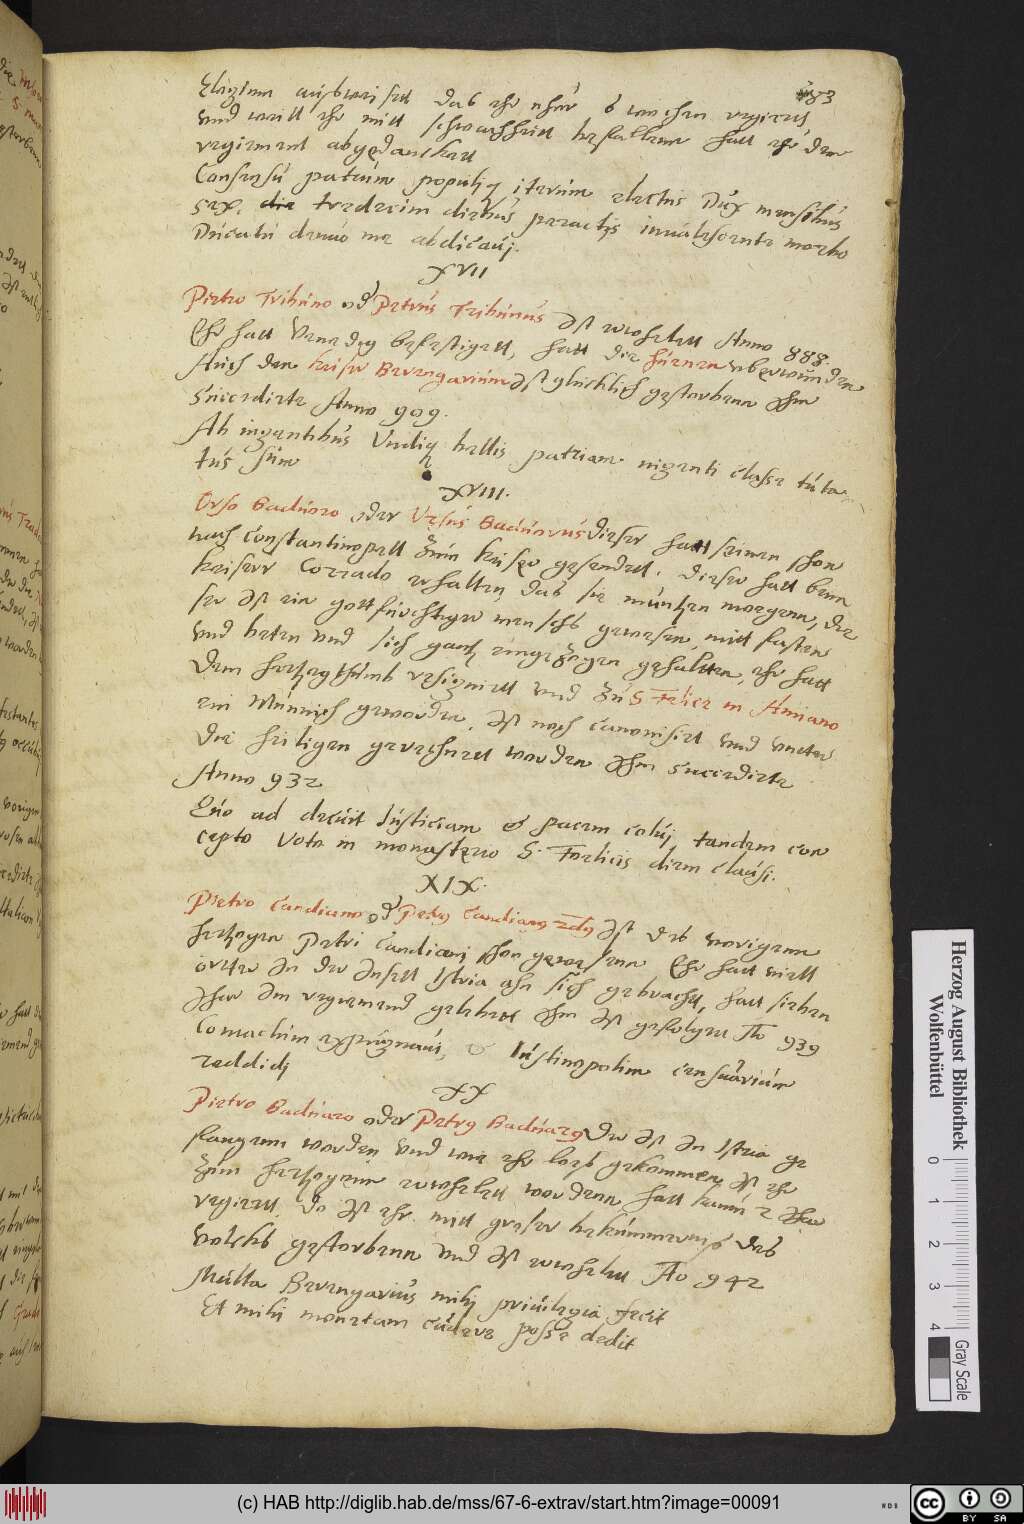 183
auswaiset das ehr nhur 6 wochen regiert
und weill ehr mitt schwachheitt befallenn hatt ehr dem
regiement abgedanckett
Consensu patrum populiq iterum electus Dux mensibus
sex, tredecim diebus peractis invalescente morbo
Ducatu denuo me abdicavj.
XVII
Pietro Tribuno od Petrus Tribunus Ist erwehlett Anno 888.
Ehr hatt Venedig befestigett, hatt die Hunnen uberwunden
Auch den keiser Berengarium Ist glücklich gestorbenn Ihm
Succedirte Anno 909.
Ab ingentibus Undiq bellis patriam ingenti classe tuta
tus sum
XVIII.
Orso Baduaro oder Ursus Baduarus dieser hatt seinen sohn
nach Constantinopell zum keiser gesendet. dieser hatt benn
keiserr Corrado erhalten das sie müntzen mögenn, die
ser Ist ein gottfürchtiger mensch gewesen, mitt fasten
und beten und sich gantz eingezogen gehaltten, ehr hatt
dem hertzogthumb resigniett und zu S Felice in Amiano
ein Münnich geworden, Ist noch canonisirt und unter
die heiligen gerechnet worden Ihm succedirte
Anno 932
Quo ad decuit Justiciam & pacem coluj tandem con
cepto Voto in monasterio S. Foelicis diem clausi.
XIX.
Pietro Candiano od Petrq Candianq 2dq Ist des vorigenn
hertzogen Petri Candianj sohn gewesenn Ehr hatt viell
örtter In der Insell Istria ahn sich gebracht, hatt sieben
Jhar Im regiement gelebett Ihm Ist gefolgett Ao 939
Comachum expugnavi, & Justinopolim censuarium
reddidj
XX
Pietro Baduaro oder Petrq Baduarq Der Ist In Istria ge
fangenn worden und wie ehr loes gekommen, Ist ehr
zum hertzogenn erwehlett wordenn hatt kaum 2 Jhar
regiret, do Ist ehr mitt groser bekümmernus des
Volcks gestorbenn und Ist erwehlett Ao 942
Multa Berengarius mihj privilegia fecit
Et mihj monetam cudere posse dedit
Herzog August Bibliothek
Wolfenbüttel
0 1 2 3 4
Gray Scale
(c) HAB http://diglib.hab.de/mss/67-6-extrav/start.htm?image=00091
WDB
cc BY SA